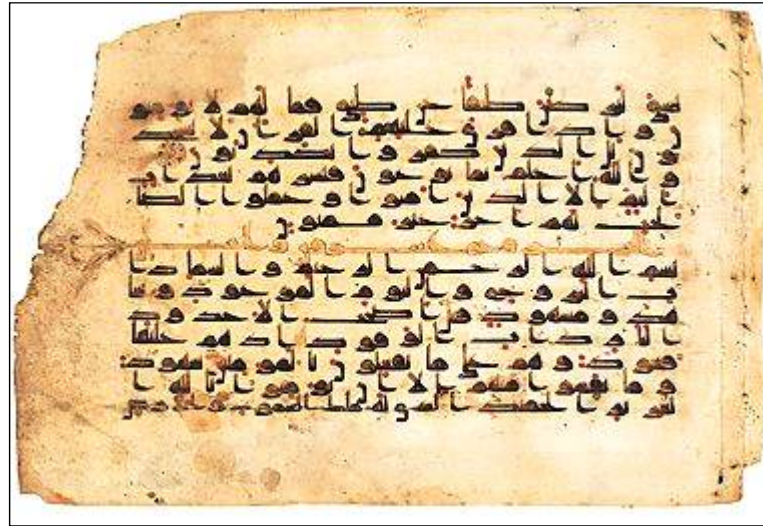 تسق لتركبن طبقا عن طبق فما لهم لا يومنو
ن واذا قرى عليهم القران لا يسجد
ون بل الذين كفروا يكذبون
والله اعلم بما يوعون فبشرهم بعذاب
اليم الا الذين امنوا وعملوا الصا
لحت لهم اجر غير ممنون
بسم الله الرحمن الرحيم والسما ذا
ت البروج واليوم الموعود وشا
هد ومشهود قتل اصحب الاخدود
النار ذات الوقود اذ هم عليها
قعود وهم على ما يفعلون بالمومنين شهود
وما نقموا منهم الا ان يومنوا بالله ا
لعزيز الحميد الذي له ملك السموت والارض